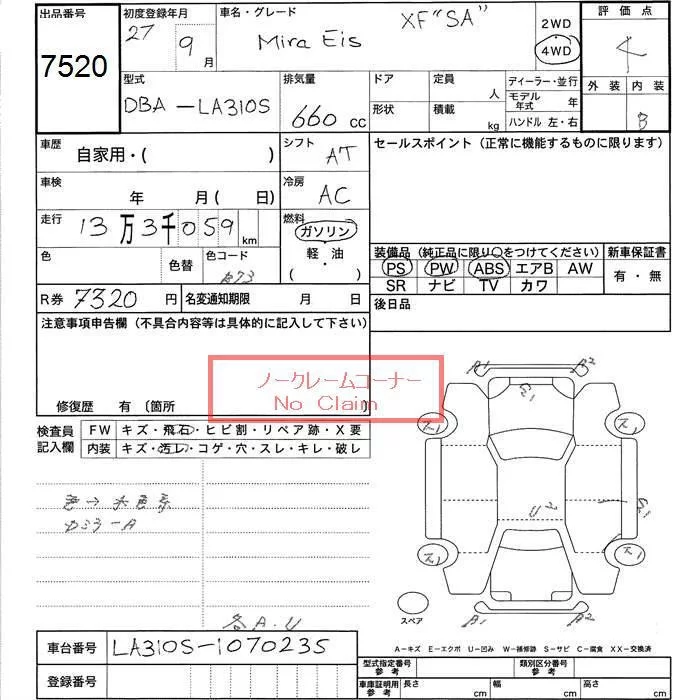 出品番号
7520
初度登録年月
27 9 月
車名・グレード
Mira Eis XF"SA"
2WD
4WD
評価点
外装 内装
B
型式
DBA-LA310S
排気量
660 cc
ドア
形状
定員 人
積載 kg
ディーラー・並行
モデル年式 年
ハンドル 左・右
車歴
自家用・( )
シフト
AT
セールスポイント (正常に機能するものに限ります)
車検
年 月( 日)
冷房
AC
走行
13万3千059 km
燃料
ガソリン
・
軽・油
( )
色
色替
色コード
装備品 (純正品に限り○をつけてください)
PS PW ABS エアB AW
SR ナビ TV カワ
新車保証書
有・無
R券 7320 円
名変通知期限 月 日
後日品
注意事項申告欄 (不具合内容等は具体的に記入して下さい)
ノークレームコーナー
No Claim
修復歴 有 〔箇所
検査員記入欄
FW キズ・飛石・ヒビ割・リペア跡・X要
内装 キズ・汚レ・コゲ・穴・スレ・キレ・破レ
色→水色系
カミラーA
各A.U
A1 A2
U2
A1 A2
スペア
A-キズ E-エクボ U-凹み W-補修跡 S-サビ C-腐食 XX-交換済
車台番号 LA310S-1070235
登録番号
型式指定番号 参考
類別区分番号 参考
車庫証明用 参考
長さ cm
幅 cm
高さ cm